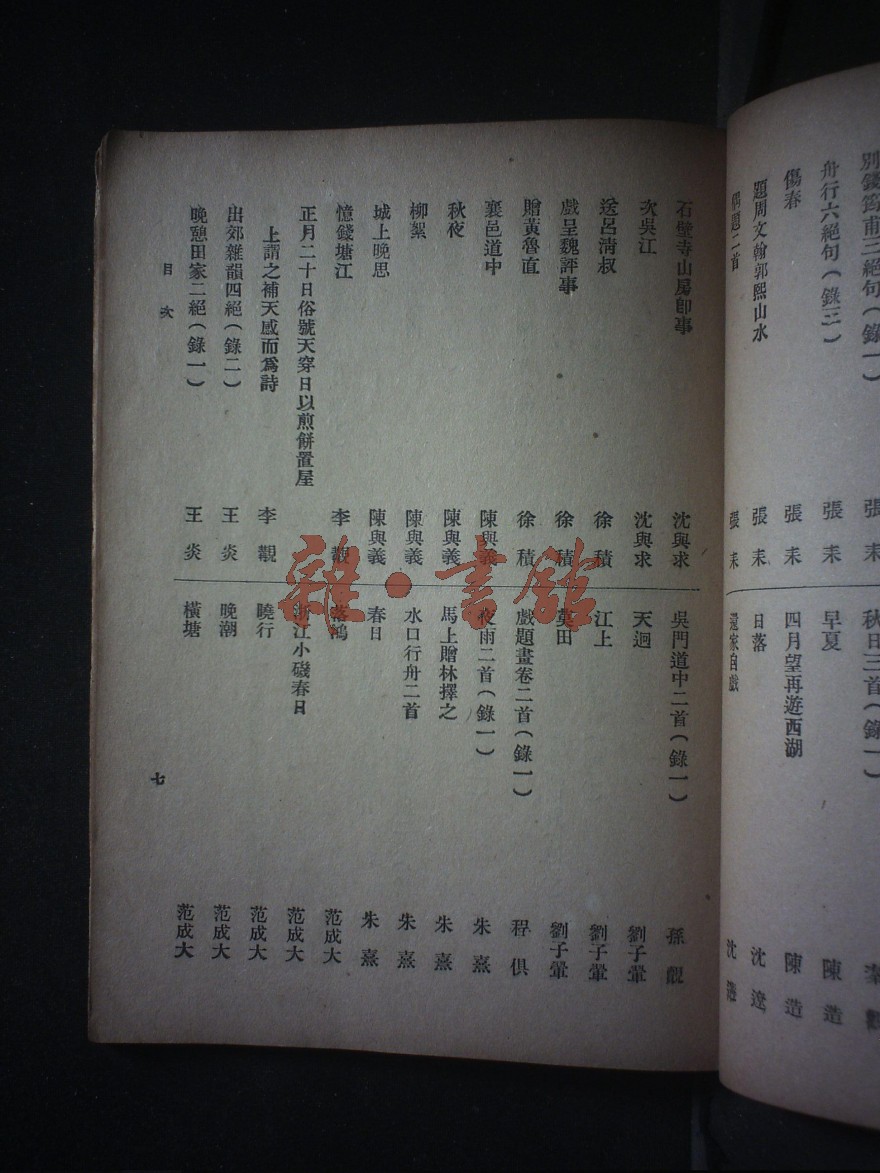 別錢筠甫三絕句(錄一) 張耒
舟行六絕句(錄三) 張耒
傷春 張耒
題周文翰郭熙山水 張耒
偶題二首 張耒
秋日三首(錄一) 秦觀
早夏 陳造
四月望再遊西湖 陳造
日落 沈遼
還家自戲 沈遼
石壁寺山房卽事 沈與求
次吳江 沈與求
送呂淸叔 徐積
戲呈魏評事 徐積
贈黃魯直 徐積
襄邑道中 陳與義
秋夜 陳與義
柳絮 陳與義
城上晚思 陳與義
憶錢塘江 李覯
正月二十日俗號天穿日以煎餅置屋
上謂之補天感而爲詩 李覯
出郊雜韻四絕(錄二) 王炎
晚憩田家二絕(錄一) 王炎
吳門道中二首(錄一) 孫覿
天迥 劉子翬
江上 劉子翬
策田 劉子翬
戲題畫卷二首(錄一) 程俱
夜雨二首(錄一) 朱熹
馬上贈林擇之 朱熹
水口行舟二首 朱熹
春日 朱熹
落鴻 范成大
浙江小磯春日 范成大
曉行 范成大
晚潮 范成大
橫塘 范成大
目次
七
雜·書館